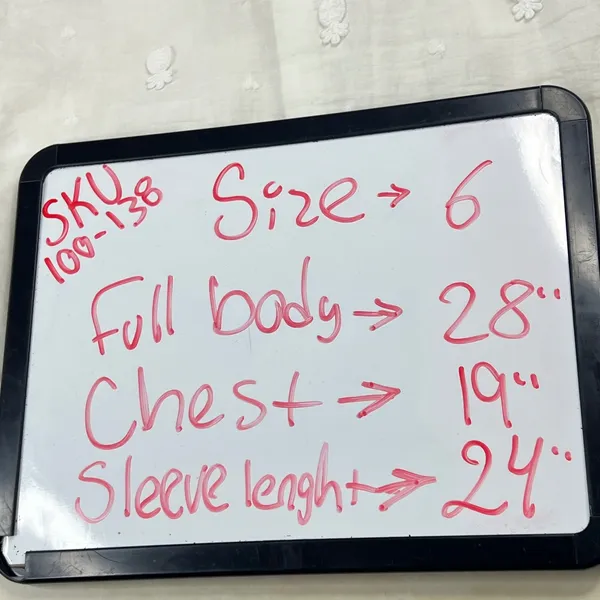 SKU
100-138
Size → 6
Full body → 28"
Chest → 19"
Sleeve lenght → 24"